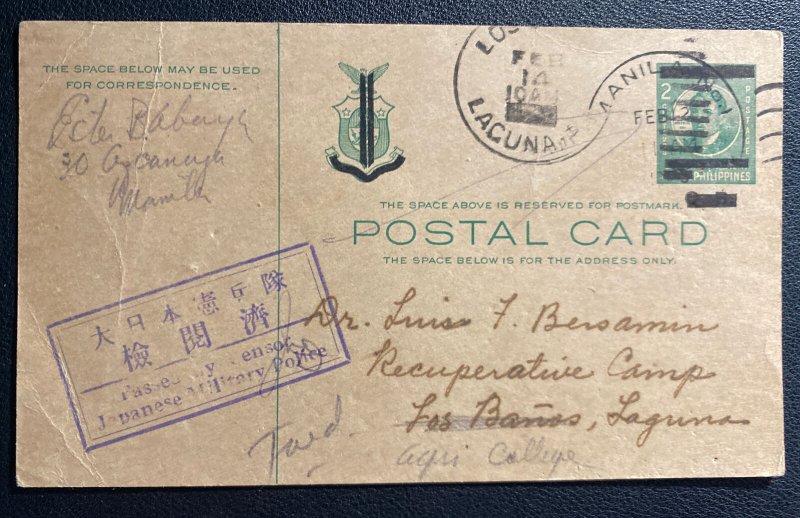 THE SPACE BELOW MAY BE USED
FOR CORRESPONDENCE.
30
Manila
LOS
FEB
14
LACUNA
MANILA
FEB 12
2
POSTAGE
PHILIPPINES
THE SPACE ABOVE IS RESERVED FOR POSTMARK.
POSTAL CARD
THE SPACE BELOW IS FOR THE ADDRESS ONLY.
大日本憲兵隊
檢閲濟
Passed by Censor
Japanese Military Police
Dr. Luis F. Bersamin
Recuperative Camp
Los Baños, Laguna
Agri College